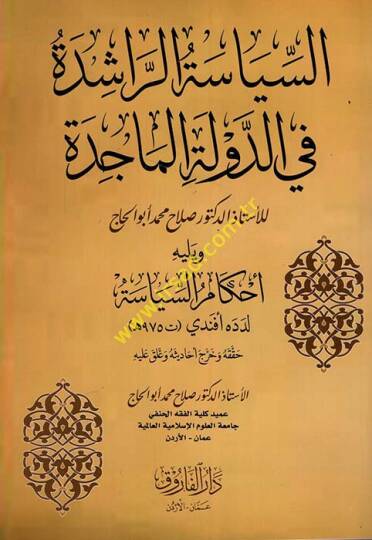 السِّيَاسَةُ الرَّاشِدَةُ
فِي الدَّوْلَةِ الْمَاجِدَةِ
للأستاذ الدكتور صلاح محمد أبو الحاج
ويليه
أحكام السياسة
لدده أفندي (ت ٩٧٥هـ)
حققه وخرج أحاديثه وعلق عليه
الأستاذ الدكتور صلاح محمد أبو الحاج
عميد كلية الفقه الحنفي
جامعة العلوم الإسلامية العالمية
عمان - الأردن
دار الفاروق
عمان - الأردن